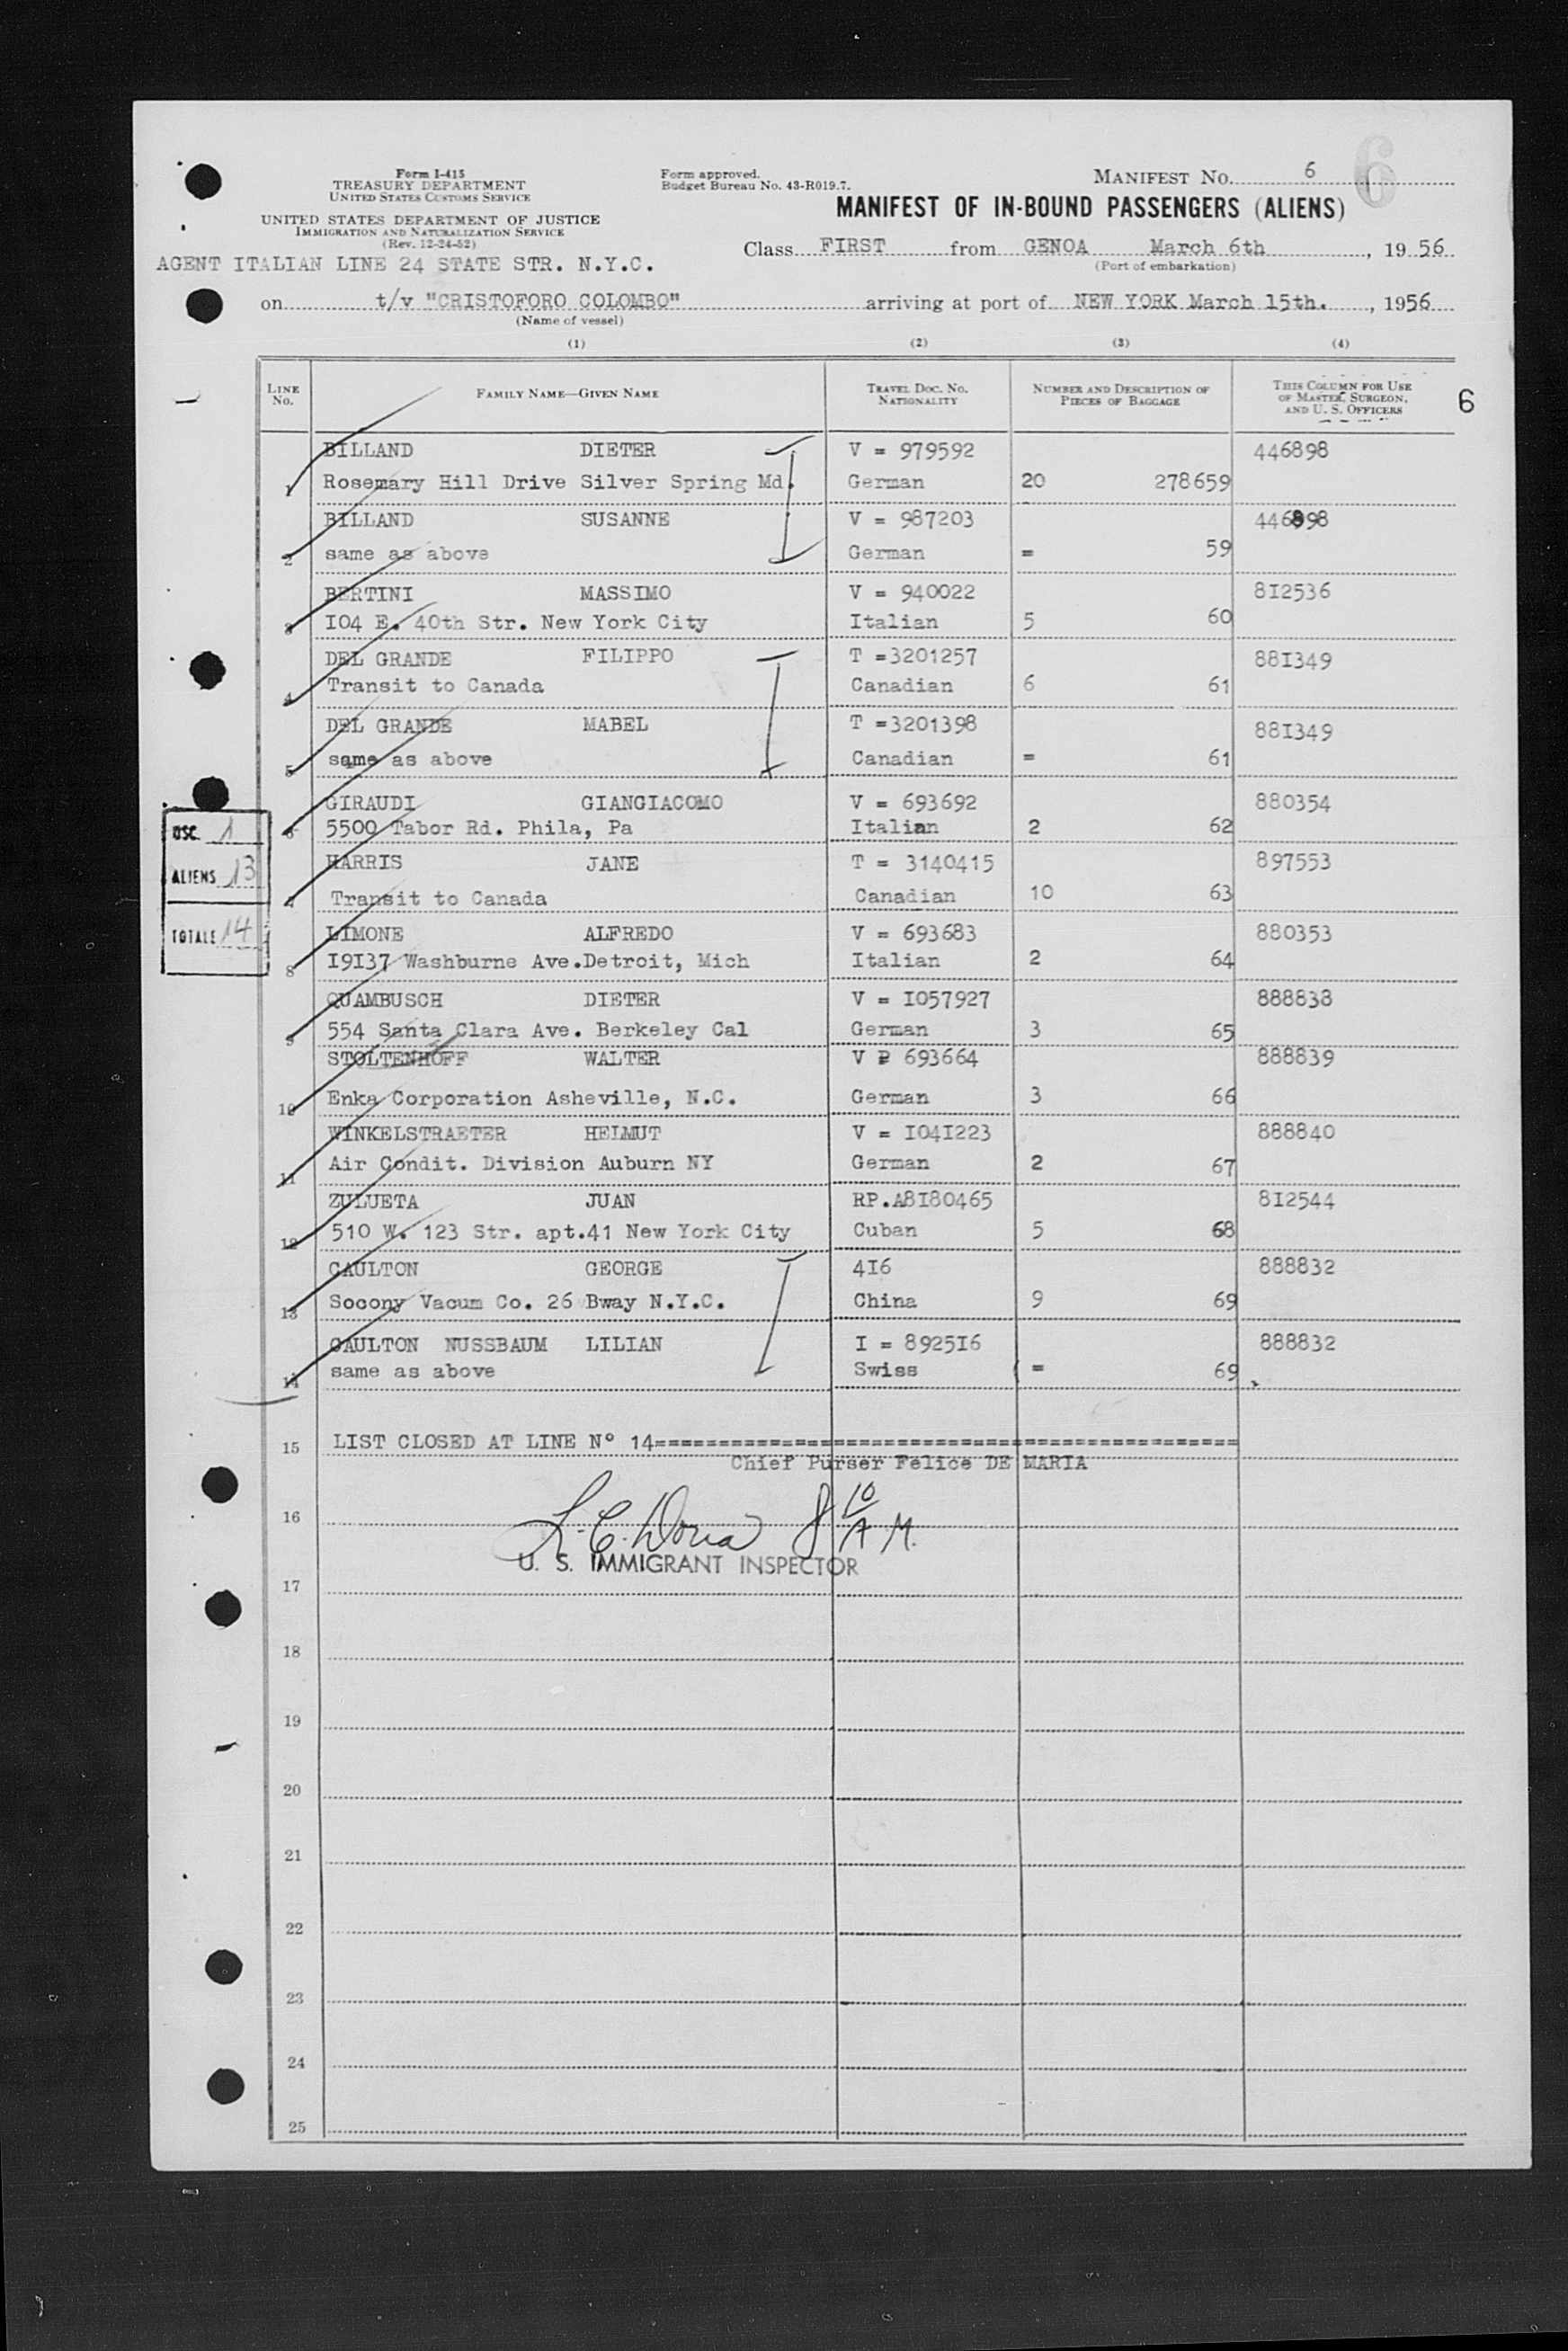 Form I-415
TREASURY DEPARTMENT
UNITED STATES CUSTOMS SERVICE
UNITED STATES DEPARTMENT OF JUSTICE
IMMIGRATION AND NATURALIZATION SERVICE
(Rev. 12-24-52)
AGENT ITALIAN LINE 24 STATE STR. N.Y.C.
Form approved.
Budget Bureau No. 43-R019.7.
MANIFEST NO. 6
6
MANIFEST OF IN-BOUND PASSENGERS (ALIENS)
Class FIRST from GENOA March 6th, 1956
(Port of embarkation)
on t/v "CRISTOFORO COLOMBO" arriving at port of NEW YORK March 15th., 1956
(Name of vessel)
(1) (2) (3) (4)
LINE NO. FAMILY NAME—GIVEN NAME TRAVEL DOC. NO. NATIONALITY NUMBER AND DESCRIPTION OF PIECES OF BAGGAGE THIS COLUMN FOR USE OF MASTER, SURGEON, AND U. S. OFFICERS
6
BILLAND DIETER V = 979592 446898
1 Rosemary Hill Drive Silver Spring Md. German 20 278659
BILLAND SUSANNE V = 987203 446898
2 same as above German = 59
BERTINI MASSIMO V = 940022 8I2536
3 I04 E. 40th Str. New York City Italian 5 60
DEL GRANDE FILIPPO T =3201257 88I349
4 Transit to Canada Canadian 6 61
DEL GRANDE MABEL T =3201398 88I349
5 same as above Canadian = 61
GIRAUDI GIANGIACOMO V = 693692 880354
6 5500 Tabor Rd. Phila, Pa Italian 2 62
HARRIS JANE T = 3140415 897553
7 Transit to Canada Canadian 10 63
LIMONE ALFREDO V = 693683 880353
8 I9I37 Washburne Ave.Detroit, Mich Italian 2 64
QUAMBUSCH DIETER V = I057927 888838
9 554 Santa Clara Ave. Berkeley Cal German 3 65
STOLTENHOFF WALTER V = 693664 888839
10 Enka Corporation Asheville, N.C. German 3 66
WINKELSTRAETER HELMUT V = I04I223 888840
11 Air Condit. Division Auburn NY German 2 67
ZULUETA JUAN RP.A8I80465 8I2544
12 510 W. 123 Str. apt.41 New York City Cuban 5 68
CAULTON GEORGE 4I6 888832
13 Socony Vacum Co. 26 Bway N.Y.C. China 9 69
CAULTON NUSSBAUM LILIAN I = 8925I6 888832
14 same as above Swiss = 69
USC. 1
ALIENS 13
TOTALE 14
15 LIST CLOSED AT LINE N° 14==============================================
Chief Purser Felice DE MARIA
16 L. C. Doria 8 10/A M.
U. S. IMMIGRANT INSPECTOR
17
18
19
20
21
22
23
24
25